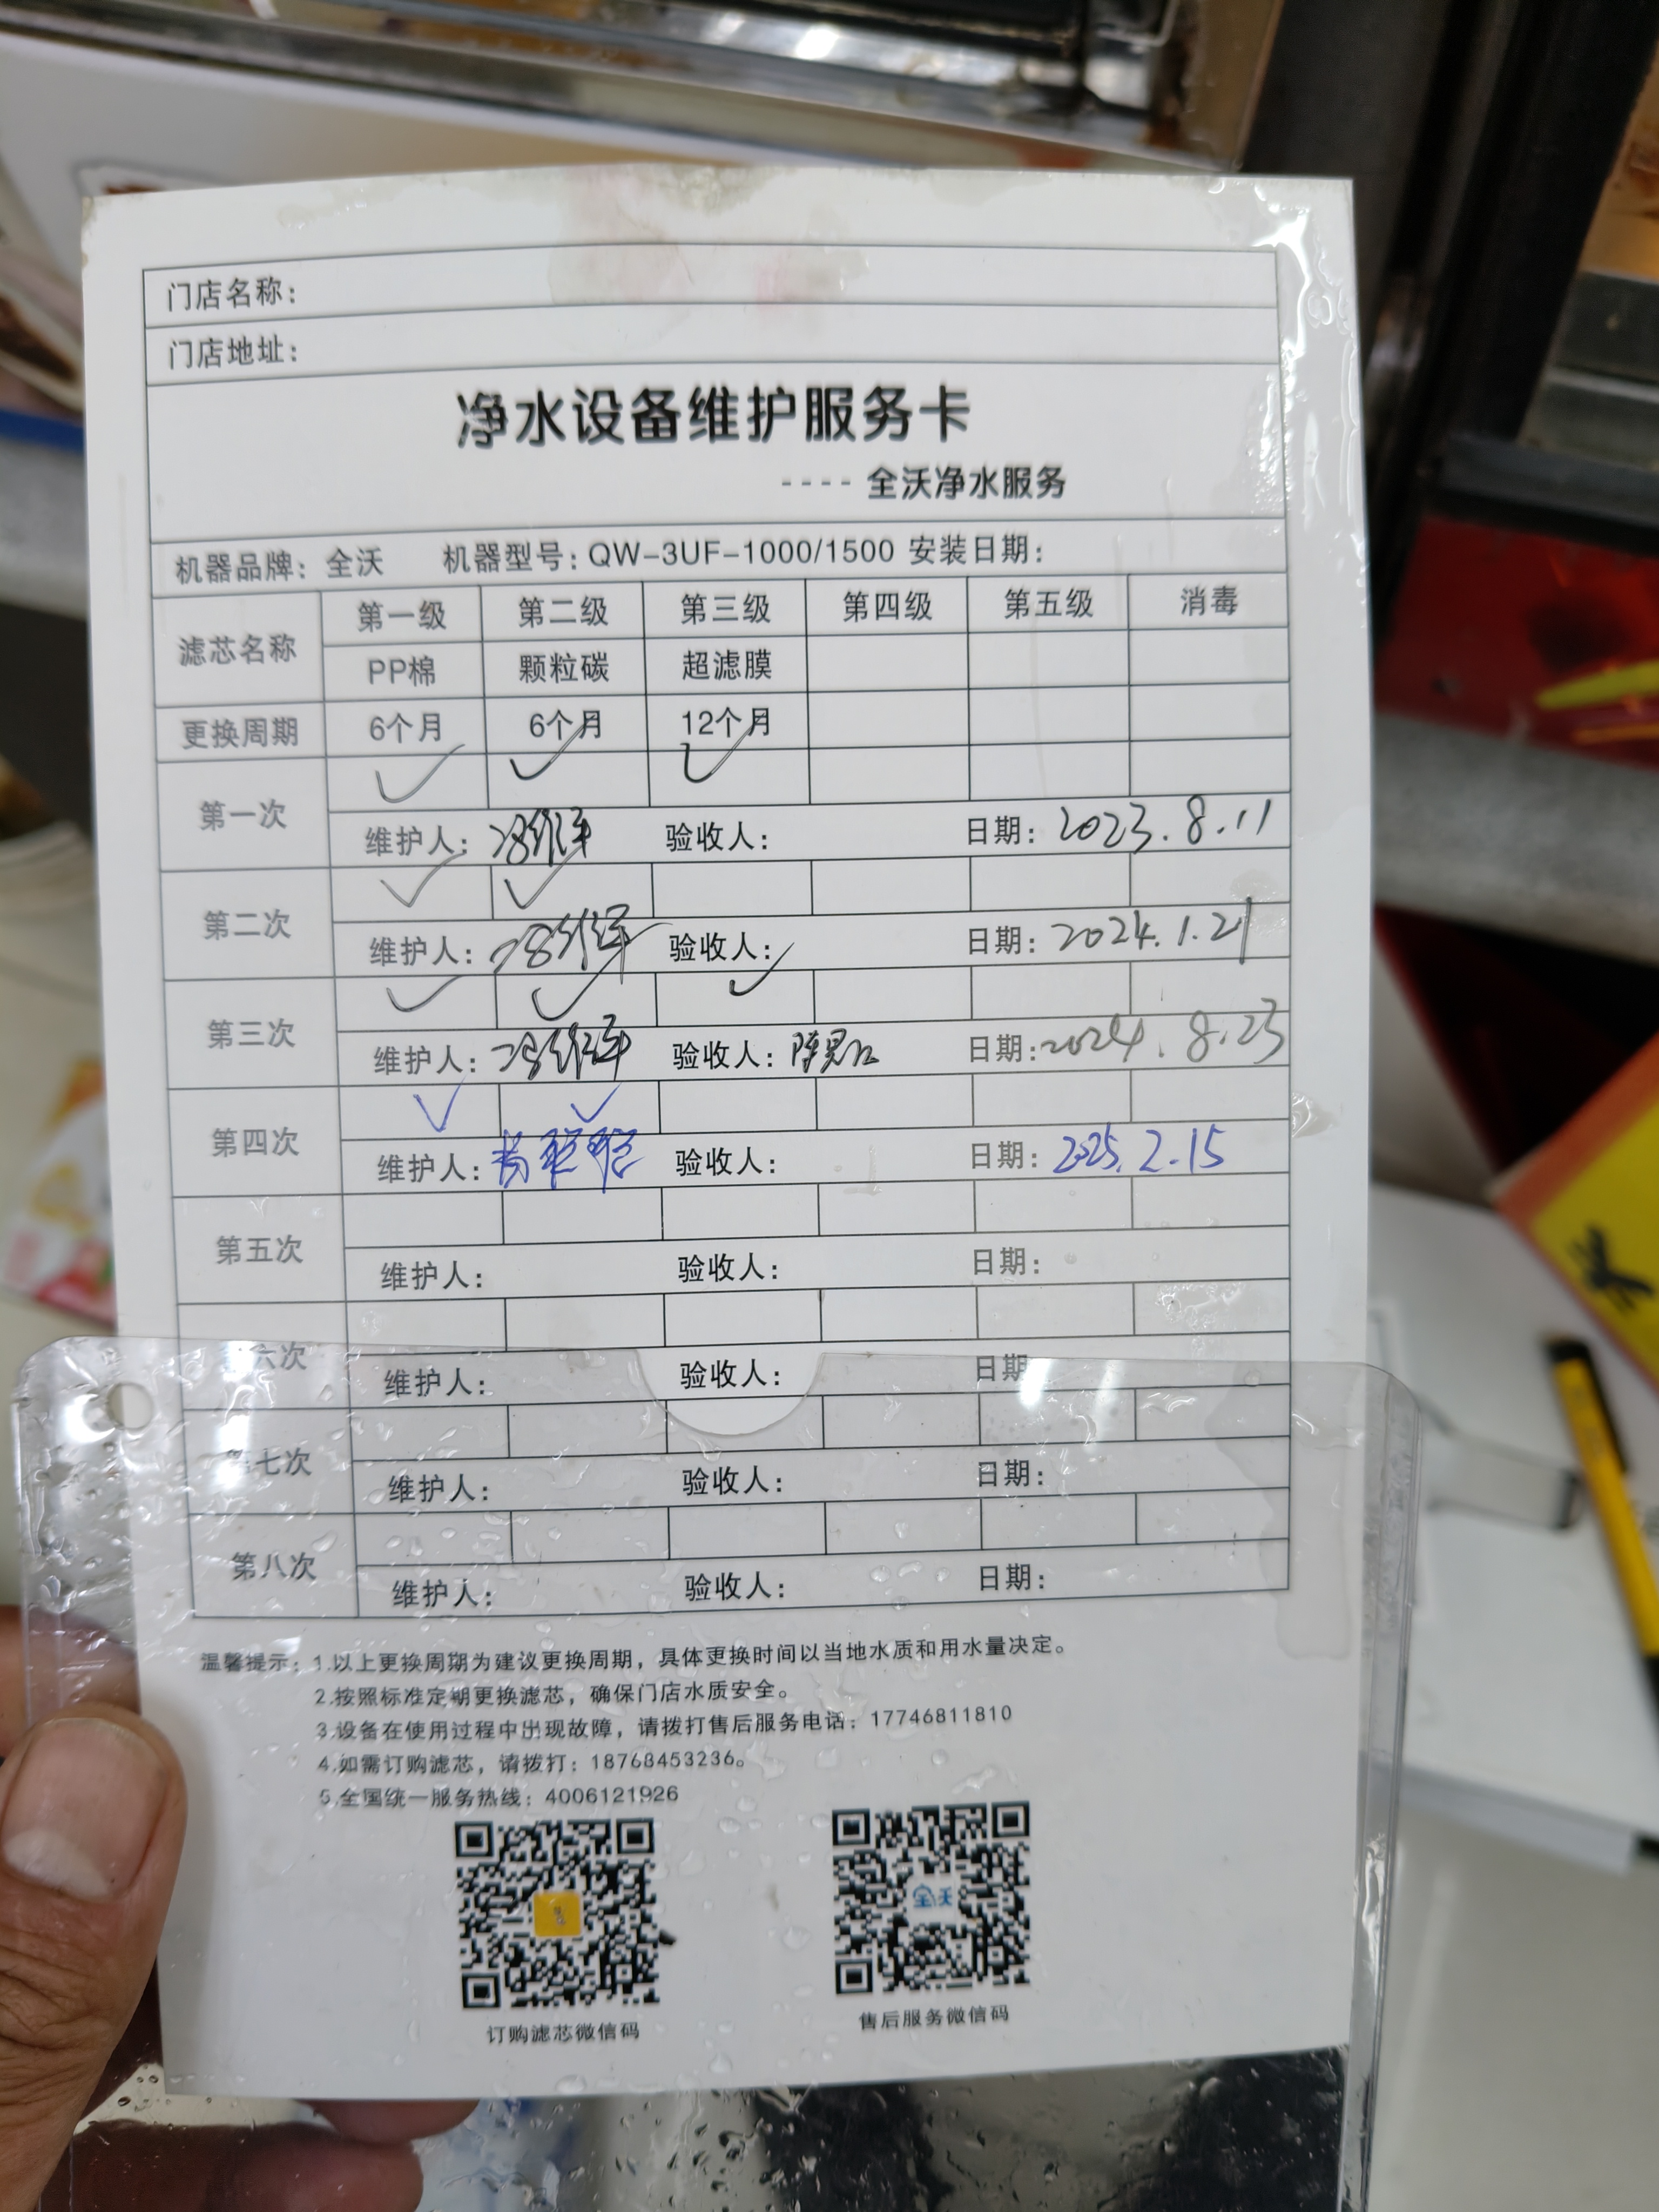 门店名称：
门店地址：
净水设备维护服务卡
---- 全沃净水服务
机器品牌：全沃 机器型号：QW-3UF-1000/1500 安装日期：
滤芯名称 第一级 第二级 第三级 第四级 第五级 消毒
PP棉 颗粒碳 超滤膜
更换周期 6个月 6个月 12个月
第一次 ✓ ✓ ✓
维护人： 验收人： 日期：2023.8.11
第二次 ✓ ✓
维护人： 验收人： 日期：2024.1.21
第三次 ✓ ✓ ✓
维护人： 验收人： 日期：2024.8.25
第四次 ✓ ✓
维护人： 验收人： 日期：2025.2.15
第五次
维护人： 验收人： 日期：
第六次
维护人： 验收人： 日期
第七次
维护人： 验收人： 日期：
第八次
维护人： 验收人： 日期：
温馨提示：1.以上更换周期为建议更换周期，具体更换时间以当地水质和用水量决定。
2.按照标准定期更换滤芯，确保门店水质安全。
3.设备在使用过程中出现故障，请拨打售后服务电话：17746811810
4.如需订购滤芯，请拨打：18768453236。
5.全国统一服务热线：4006121926
全沃
订购滤芯微信码 售后服务微信码